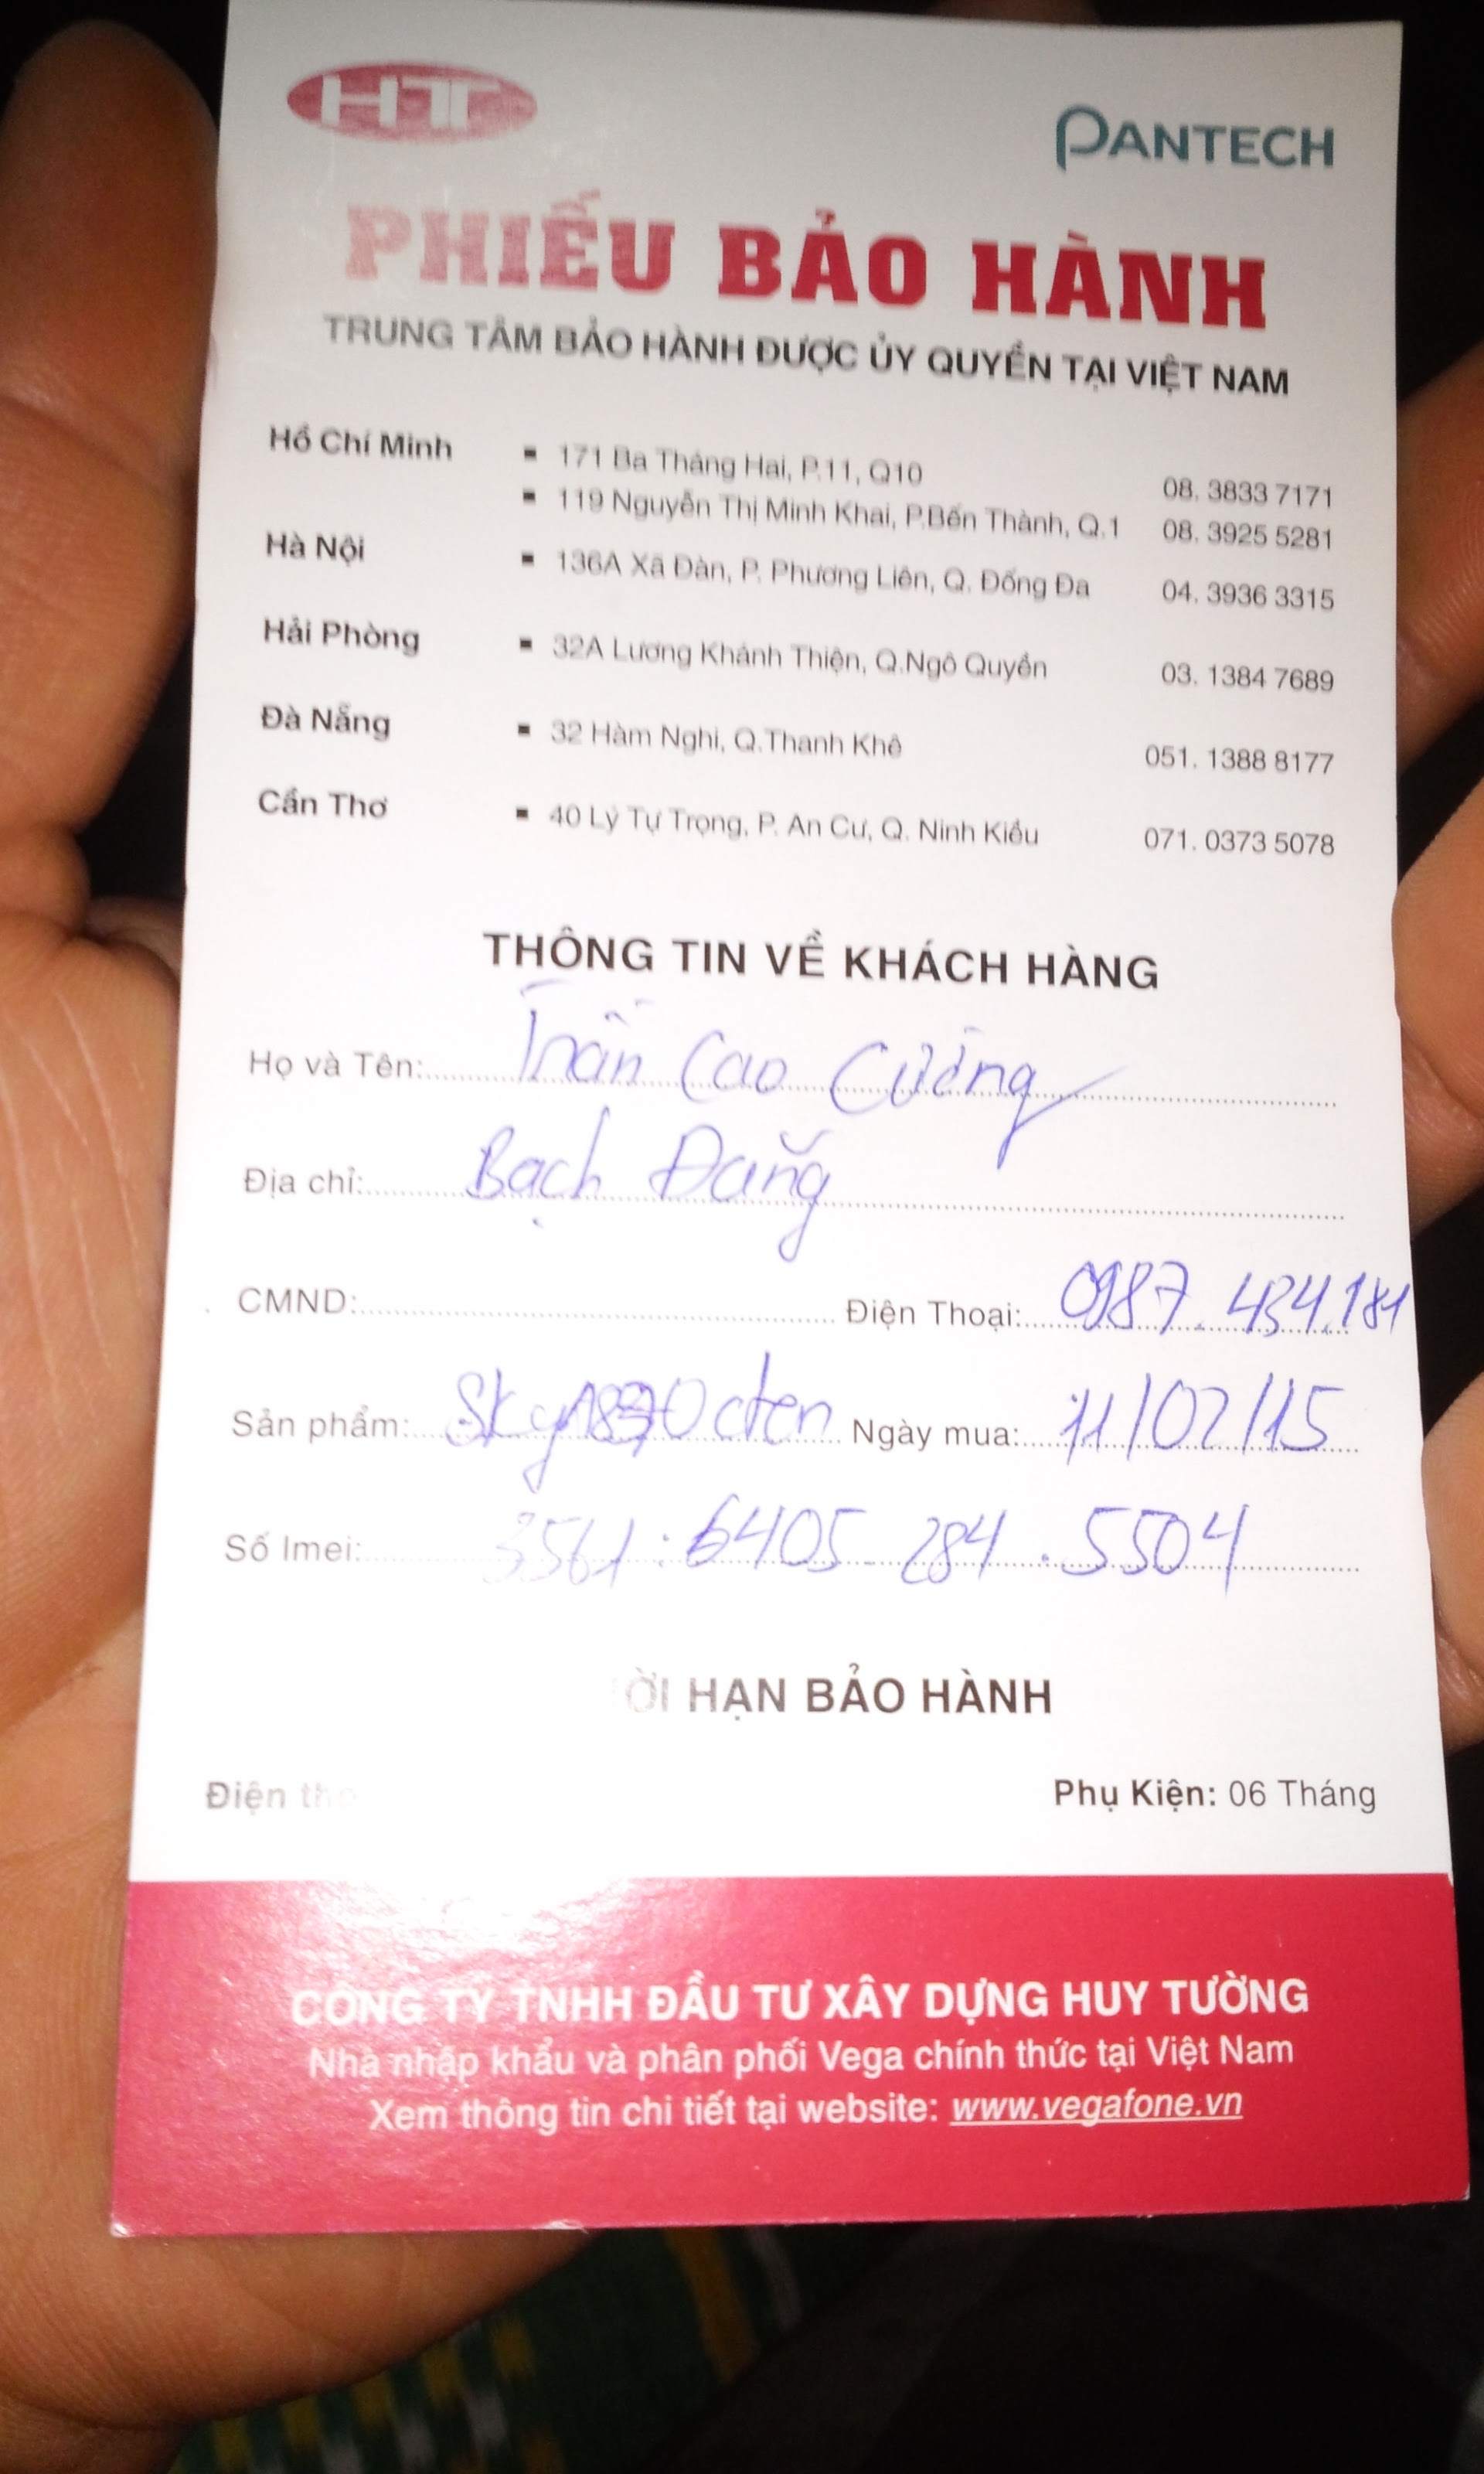 HT
PANTECH
PHIẾU BẢO HÀNH
TRUNG TÂM BẢO HÀNH ĐƯỢC ỦY QUYỀN TẠI VIỆT NAM
Hồ Chí Minh ▪ 171 Ba Tháng Hai, P.11, Q10 08. 3833 7171
▪ 119 Nguyễn Thị Minh Khai, P.Bến Thành, Q.1 08. 3925 5281
Hà Nội ▪ 136A Xã Đàn, P. Phương Liên, Q. Đống Đa 04. 3936 3315
Hải Phòng ▪ 32A Lương Khánh Thiện, Q.Ngô Quyền 03. 1384 7689
Đà Nẵng ▪ 32 Hàm Nghi, Q.Thanh Khê 051. 1388 8177
Cần Thơ ▪ 40 Lý Tự Trọng, P. An Cư, Q. Ninh Kiều 071. 0373 5078
THÔNG TIN VỀ KHÁCH HÀNG
Họ và Tên: Trần Cao Cường
Địa chỉ: Bạch Đằng
CMND: Điện Thoại: 0987.434.181
Sản phẩm: Sky đen Ngày mua: 11/02/15
Số Imei: 3561.6405.284.5504
ỜI HẠN BẢO HÀNH
Điện tho Phụ Kiện: 06 Tháng
CÔNG TY TNHH ĐẦU TƯ XÂY DỰNG HUY TƯỜNG
Nhà nhập khẩu và phân phối Vega chính thức tại Việt Nam
Xem thông tin chi tiết tại website: www.vegafone.vn